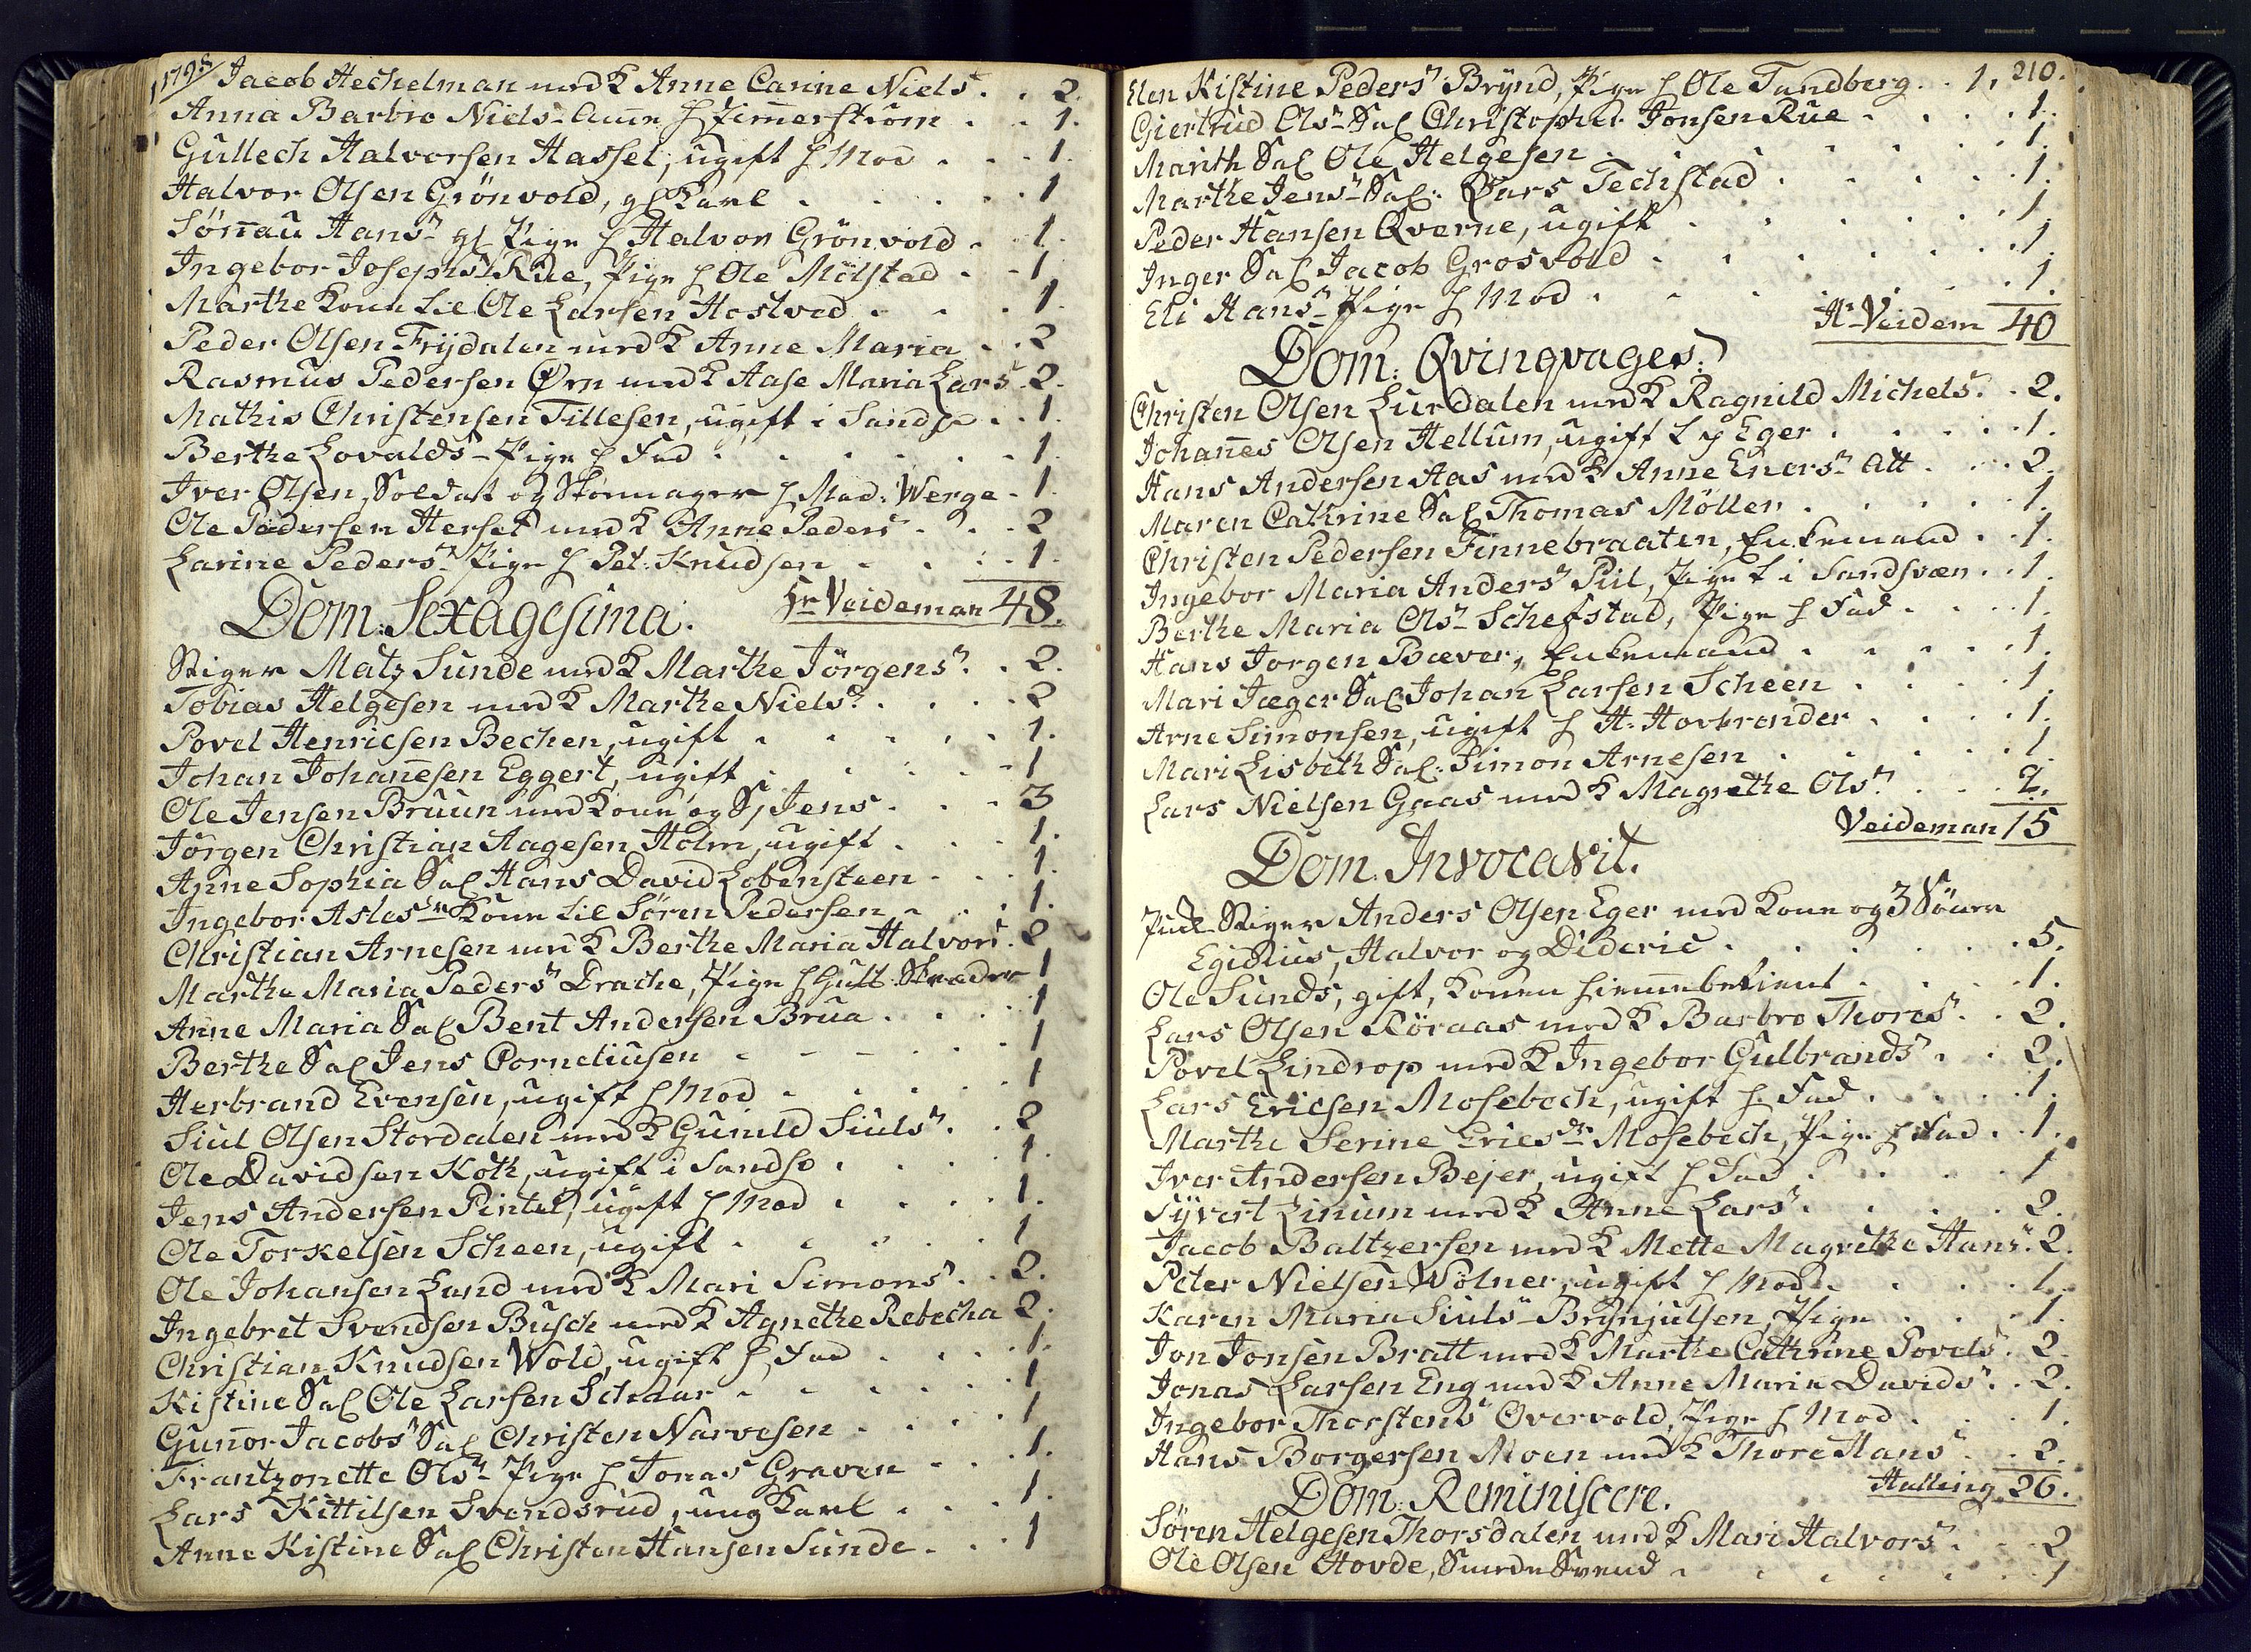 1798
Jacob Hechelman med K Anne Carine Niels. . . 2.
Anna Barbro Niels- h Zimerström . . . 1.
Gullech Halvorsen Hassel, ugift h Mod . . . 1.
Halvor Olsen Grönvold, gl Karl . . . 1
Sönau Hans- gl Pige h Halvor Grönvold . . . 1.
Ingebor Josephs- Rue, Pige h Ole Mölsted . . 1
Marthe Kone til Ole Larsen Hostved . . . 1.
Peder Olsen Frydalen med K Anne Maria . . 2
Rasmus Pedersen Örn med K Aase Maria Lars . 2.
Mathis Christensen Tillesen, ugift i Sandsv . . 1.
Berthe Lovalds- Pige h Fad . . . 1.
Iver Olsen, Soldat og Skomager h Mad: Werge . 1.
Ole Pedersen Herset med K Anne Peders . . . 2
Larine Peders- Pige h Pet: Knudsen . . . 1.
Hr Veideman 48.
Dom: Sexagesima.
Stiger Matz Sunde med K Marthe Jörgens. . 2.
Tobias Helgesen med K Marthe Niels. . . . 2
Povel Henricsen Bechen, ugift . . . 1.
Johan Johanesen Eggert, ugift . . . 1
Ole Jensen Bruun med Kone og S, Jens . . . 3
Jörgen Christian Aagesen Holm, ugift . . . 1.
Anne Sophia Sal Hans David Lobensteen . . . 1.
Ingebor Asles- Kone til Sören Pedersen . . . 1.
Christian Arnesen med K Berthe Maria Halvors. 2
Marthe Maria Peders- Drache, Pige h Gull. Skræder 1
Anne Maria Sal Bent Andersen Brua . . . 1
Berthe Sal Jens Corneliusen . . . 1
Herbrand Evensen, ugift h Mod . . . 1
Siul Olsen Stordalen med K Gunild Siuls. . 2
Ole Davidsen Koth, ugift i Sandsv . . . 1.
Jens Andersen Pintel, ugift h Mod . . . 1.
Ole Torkelsen Scheen, ugift . . . 1
Ole Johansen Lund med K Mari Simons. . 2.
Ingebret Svendsen Busch med K Agnethe Rebecha 2.
Christian Knudsen Wold, ugift h Fad . . . 1.
Kistine Sal Ole Larsen Schaar . . . 1
Gunor Jacobs- Sal Christen Narvesen . . . 1
Frantzonette Ols- Pige h Jonas Graven . . . 1.
Lars Kittilsen Svendsrud, ung Karl . . . 1.
Anne Kistine Sal Christen Hansen Sunde . . . 1
210.
Elen Kistine Peders- Brynd, Pige h Ole Tundberg . . 1.
Giertrud Ols- Sal Christopher Jonsen Rue . . . 1.
Marith Sal Ole Helgesen . . . 1.
Marthe Jens- Sal: Lars Techstad . . . 1.
Peder Hansen Qverne, ugift . . . 1.
Inger Sal Jacob Grosvold . . . 1
Eli Hans- Pige h Mod . . . 1.
Hr Veidem 40
Dom: Qvinqvages:
Christen Olsen Lurdalen med K Ragnild Michels. . 2.
Johanes Olsen Hellum, ugift t p Eger . . . 1.
Hans Andersen Aas med K Anne Eners- Att . . . 2.
Maren Cathrine Sal Thomas Möller . . . 1.
Christen Pedersen Finnebraaten, Enkemand . . 1.
Ingebor Maria Anders- Piil, Pige t i Sandsvær . . 1.
Berthe Maria Ols- Schefstad, Pige h Fad . . . 1.
Hans Jorgen Bæver, Enkemand . . . 1.
Mari Jæger Sal Johan Larsen Scheen . . . 1
Arne Simonsen, ugift h H. Hovbrender . . . 1.
Mari Lisbeth Sal: Simon Arnesen . . . 1.
Lars Nielsen Gaas med K Magrethe Ols- . . . 2.
Veideman 15
Dom. Invocavit.
Stiger Anders Olsen Eger med Kone og 3 Sönner
Egidius, Halvor og Dideric . . . 5.
Ole Sunds, gift, Konen hiemebetient . . . 1.
Lars Olsen Röraas med K Barbro Thores- . . 2.
Povel Lindrop med K Ingebor Gulbrands- . . 2.
Lars Ericsen Mosebech, ugift h Fad . . . 1.
Marthe Serine Erics- Mosebech, Pige h Fad . . 1.
Iver Andersen Bejer, ugift h Fad . . . 1
Syvert Linum med K Anne Lars- . . . 2.
Jacob Baltzersen med K Mette Magrethe Hans. 2.
Peter Nielsen Wölner, ugift h Mod . . . 1.
Karen Maria Siuls- Brynjulsen, Pige . . . 1.
Jon Jonsen Bratt med K Marthe Cathrine Povels. 2.
Jonas Larsen Eng med K Anne Maria Davids- . . 2.
Ingebor Thorstens- Overvold, Pige h Mod . . . 1.
Hans Borgersen Moen med K Thore Hans- . . 2.
Halling 26.
Dom: Reminiscere.
Sören Helgesen Thorsdalen med K Mari Halvors- . . 2
Ole Olsen Hovde, Smede Svend . . . 1